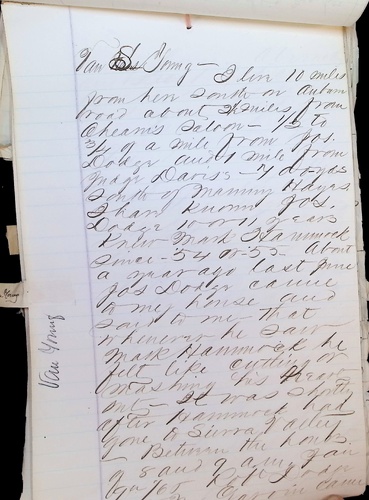 Van Young — I live 10 miles
from here South on Auburn
road about 2½ miles from
Cheam's Saloon — 1/2 to
3/4 of a mile from Jos.
Dodge and 1 mile from
Judge Davis —
South of Manny Hayes
I have known Jos.
Dodge 10 or 11 years
Knew Mark Hammock
since — 54 or 55 — About
a year ago last June
Jos Dodge came
to my house and
said to me that
whenever he saw
Mark Hammock he
felt like cutting or
mashing his heart
out — It was shortly
after Hammock had
gone to Sierra Valley
— Between the hours
of 8 and 9 a.m. Jan
Dodge
in came
Van Young